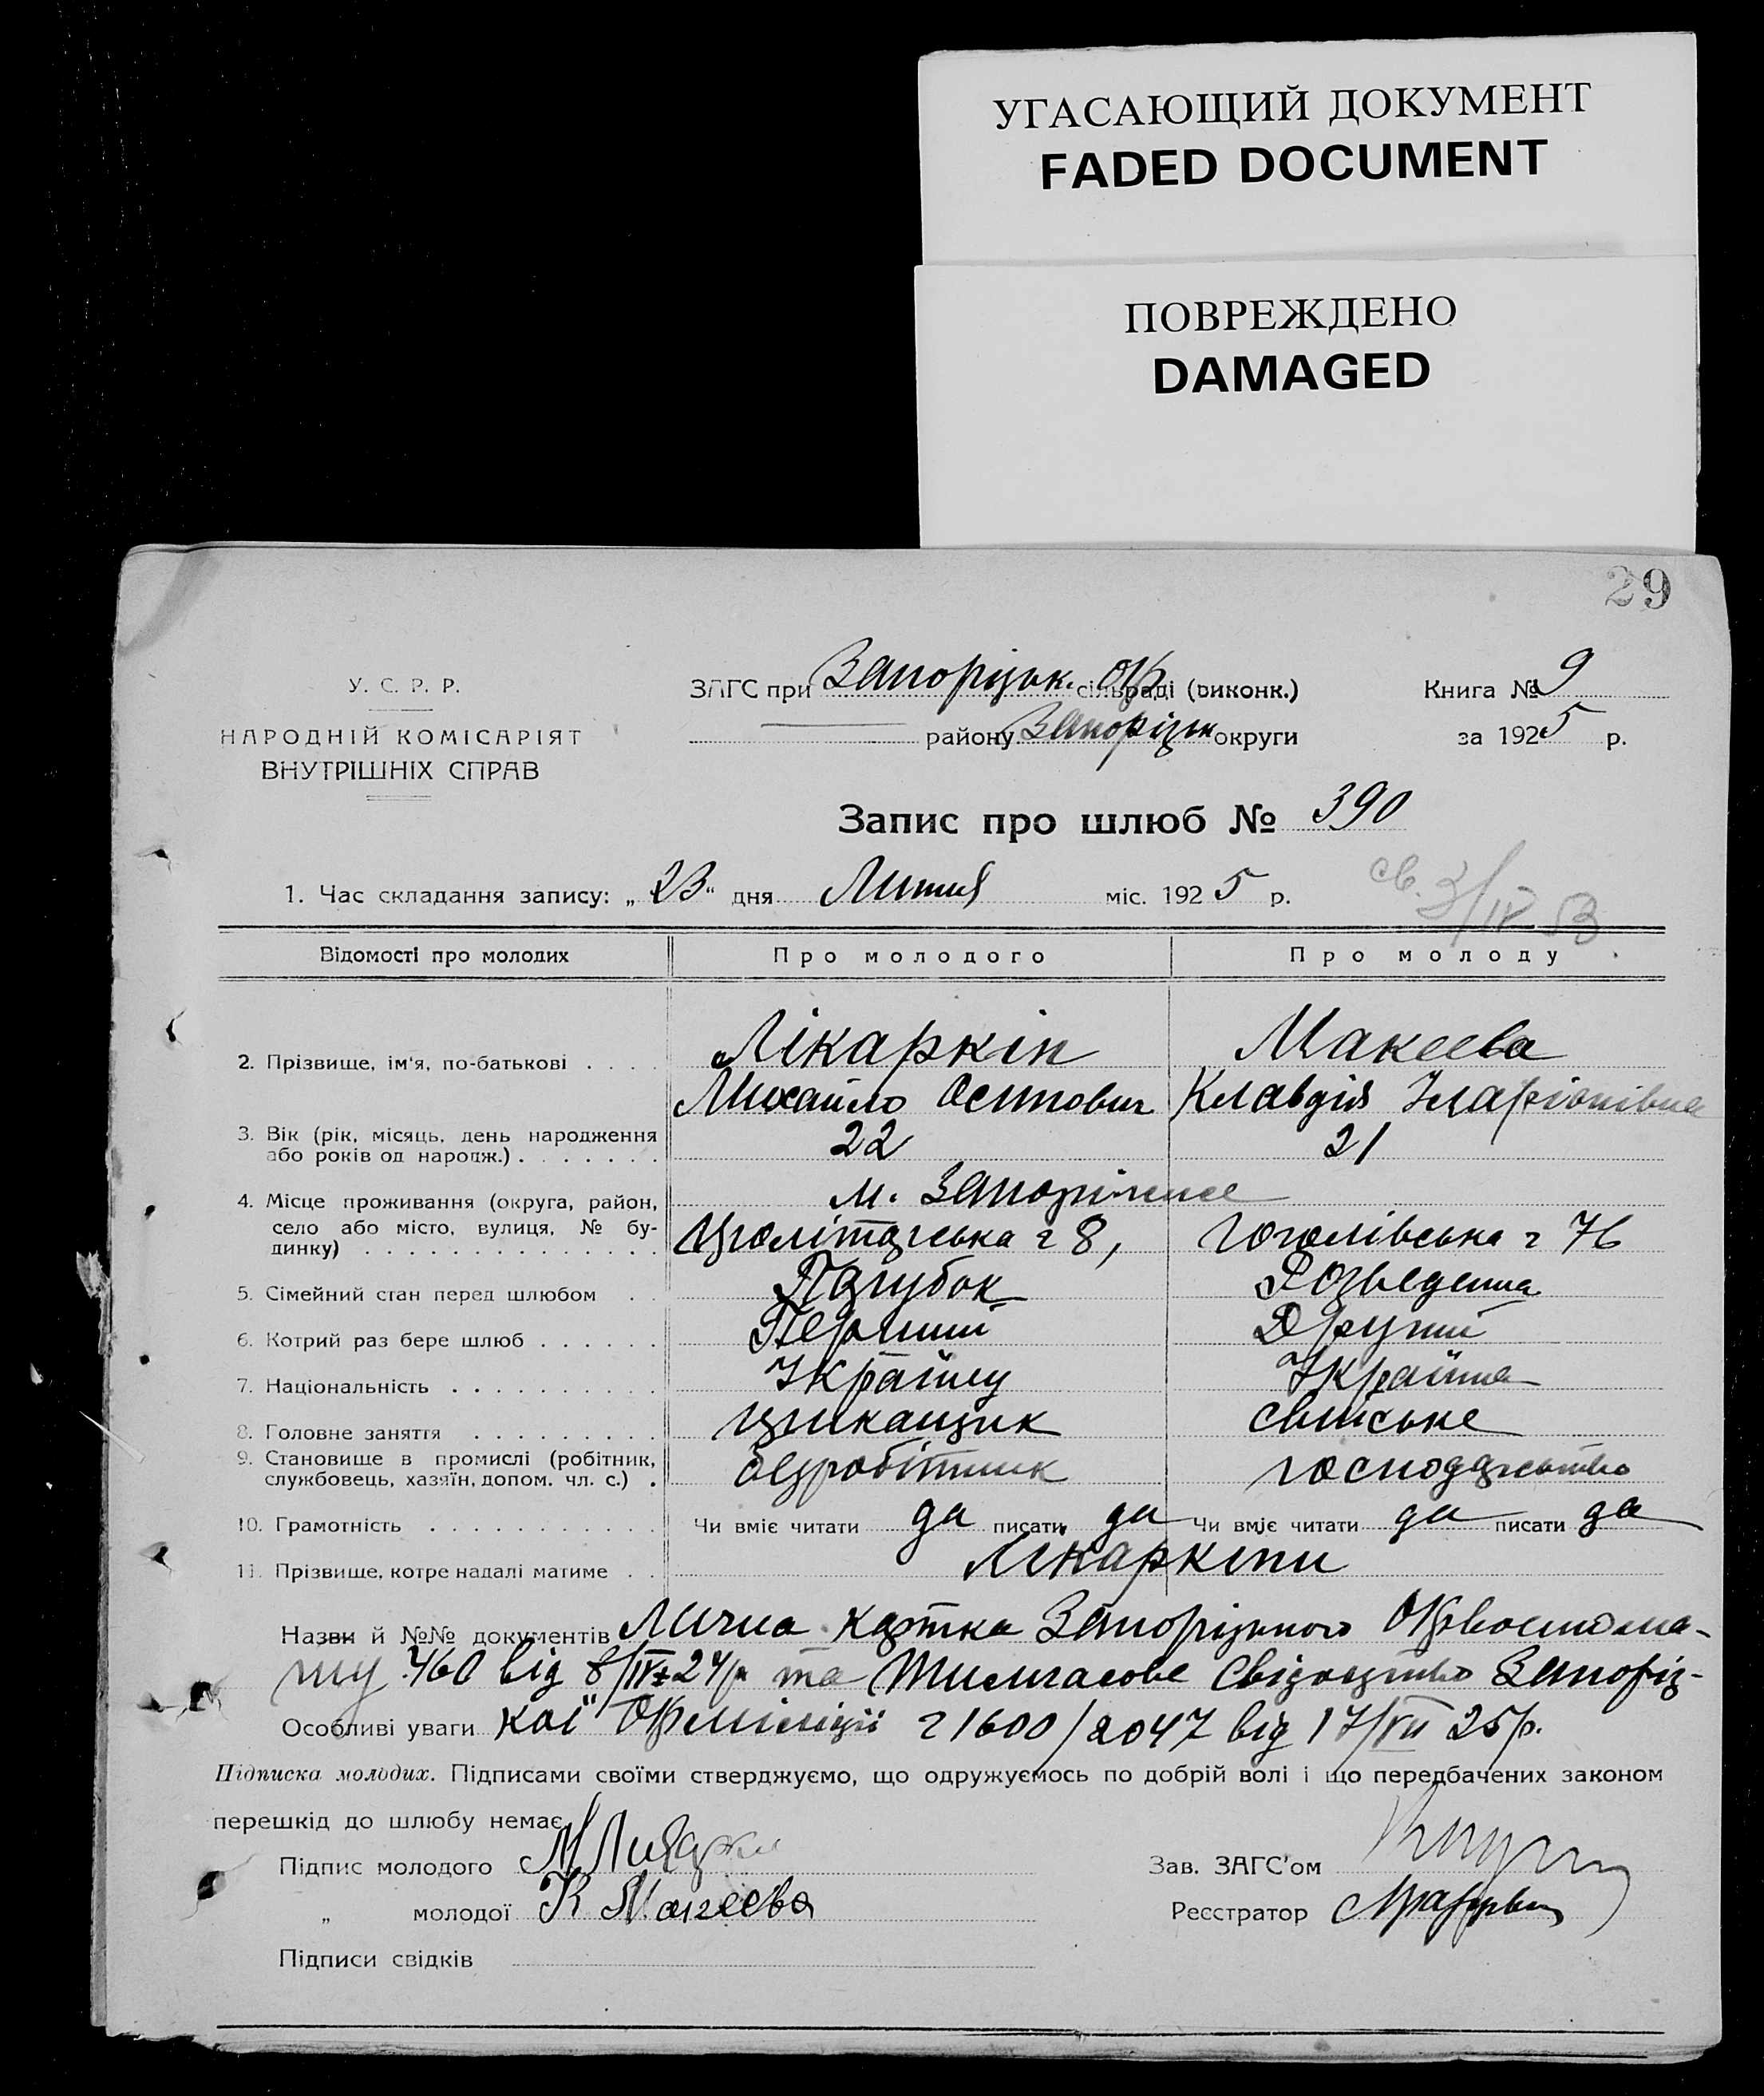 УГАСАЮЩИЙ ДОКУМЕНТ
FADED DOCUMENT
ПОВРЕЖДЕНО
DAMAGED
29
У. С. Р. Р.
НАРОДНІЙ КОМІСАРІЯТ
ВНУТРІШНІХ СПРАВ
ЗАГС при Запорізьк. Окр сільраді (виконк.)
району Запорізьк округи
Книга № 9
за 1925 р.
Запис про шлюб № 390
1. Час складання запису: „23" дня Липня міс. 1925 р.
св. 3/IV 53
Відомості про молодих Про молодого Про молоду
2. Прізвище, ім'я, по-батькові . . . . Лікаркін Макеева
Михайло Осипович Клавдія Іларіонівна
3. Вік (рік, місяць, день народження
або років од народж.) . . . . . . . 22 21
4. Місце проживання (округа, район, м. Запоріжжє
село або місто, вулиця, № бу-
динку) . . . . . . . . . . . . . . ч 8, Гоголівська ч 76
5. Сімейний стан перед шлюбом . . Парубок Розведенна
6. Котрий раз бере шлюб . . . . . . Перший Другий
7. Національність . . . . . . . . . . Українец Українка
8. Головне заняття . . . . . . . . . свийське
9. Становище в промислі (робітник, безробітник господарство
службовець, хазяїн, допом. чл. с.) .
10. Грамотність . . . . . . . . . . . Чи вміє читати да писати да Чи вміє читати да писати да
11. Прізвище, котре надалі матиме . . Лікаркіни
Назви й №№ документів Лична картка Запорізького
460 від 24р та Тимчасове Свідоцтво Запоріз-
Особливі уваги кої Окрміліції ч 1600/2047 від 17/VII 25р.
Підписка молодих. Підписами своїми стверджуємо, що одружуємось по добрій волі і що передбачених законом
перешкід до шлюбу немає
Підпис молодого
„ молодої К Макеева
Підписи свідків
Зав. ЗАГС'ом
Реєстратор